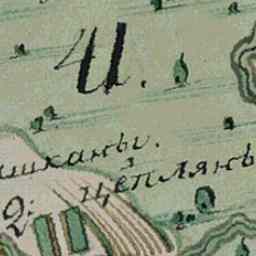 И.
шканы.
цеплянъ
2: